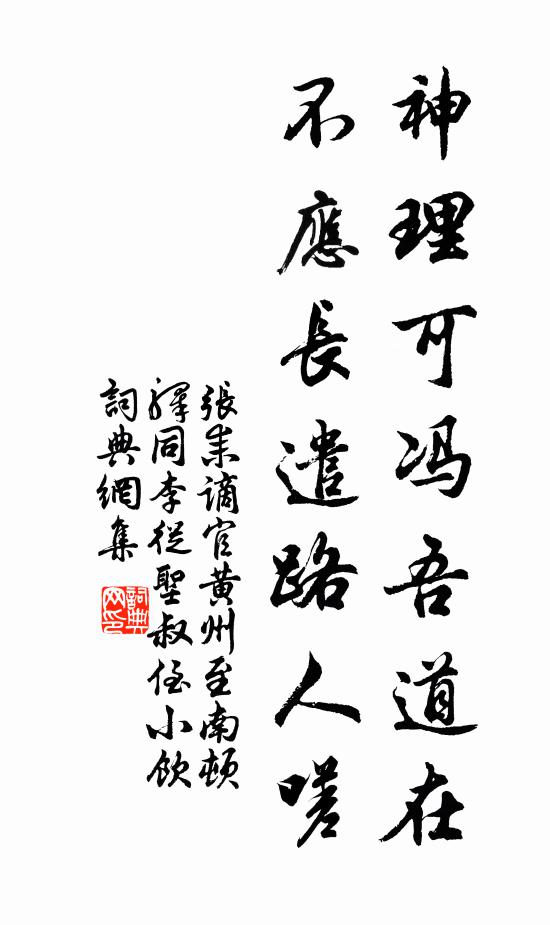 神理可冯吾道在
不應長遣路人嗟
張耒謫官黃州至南頓
驛同李從聖叔侄小飲
詞典網集
詞典
网印